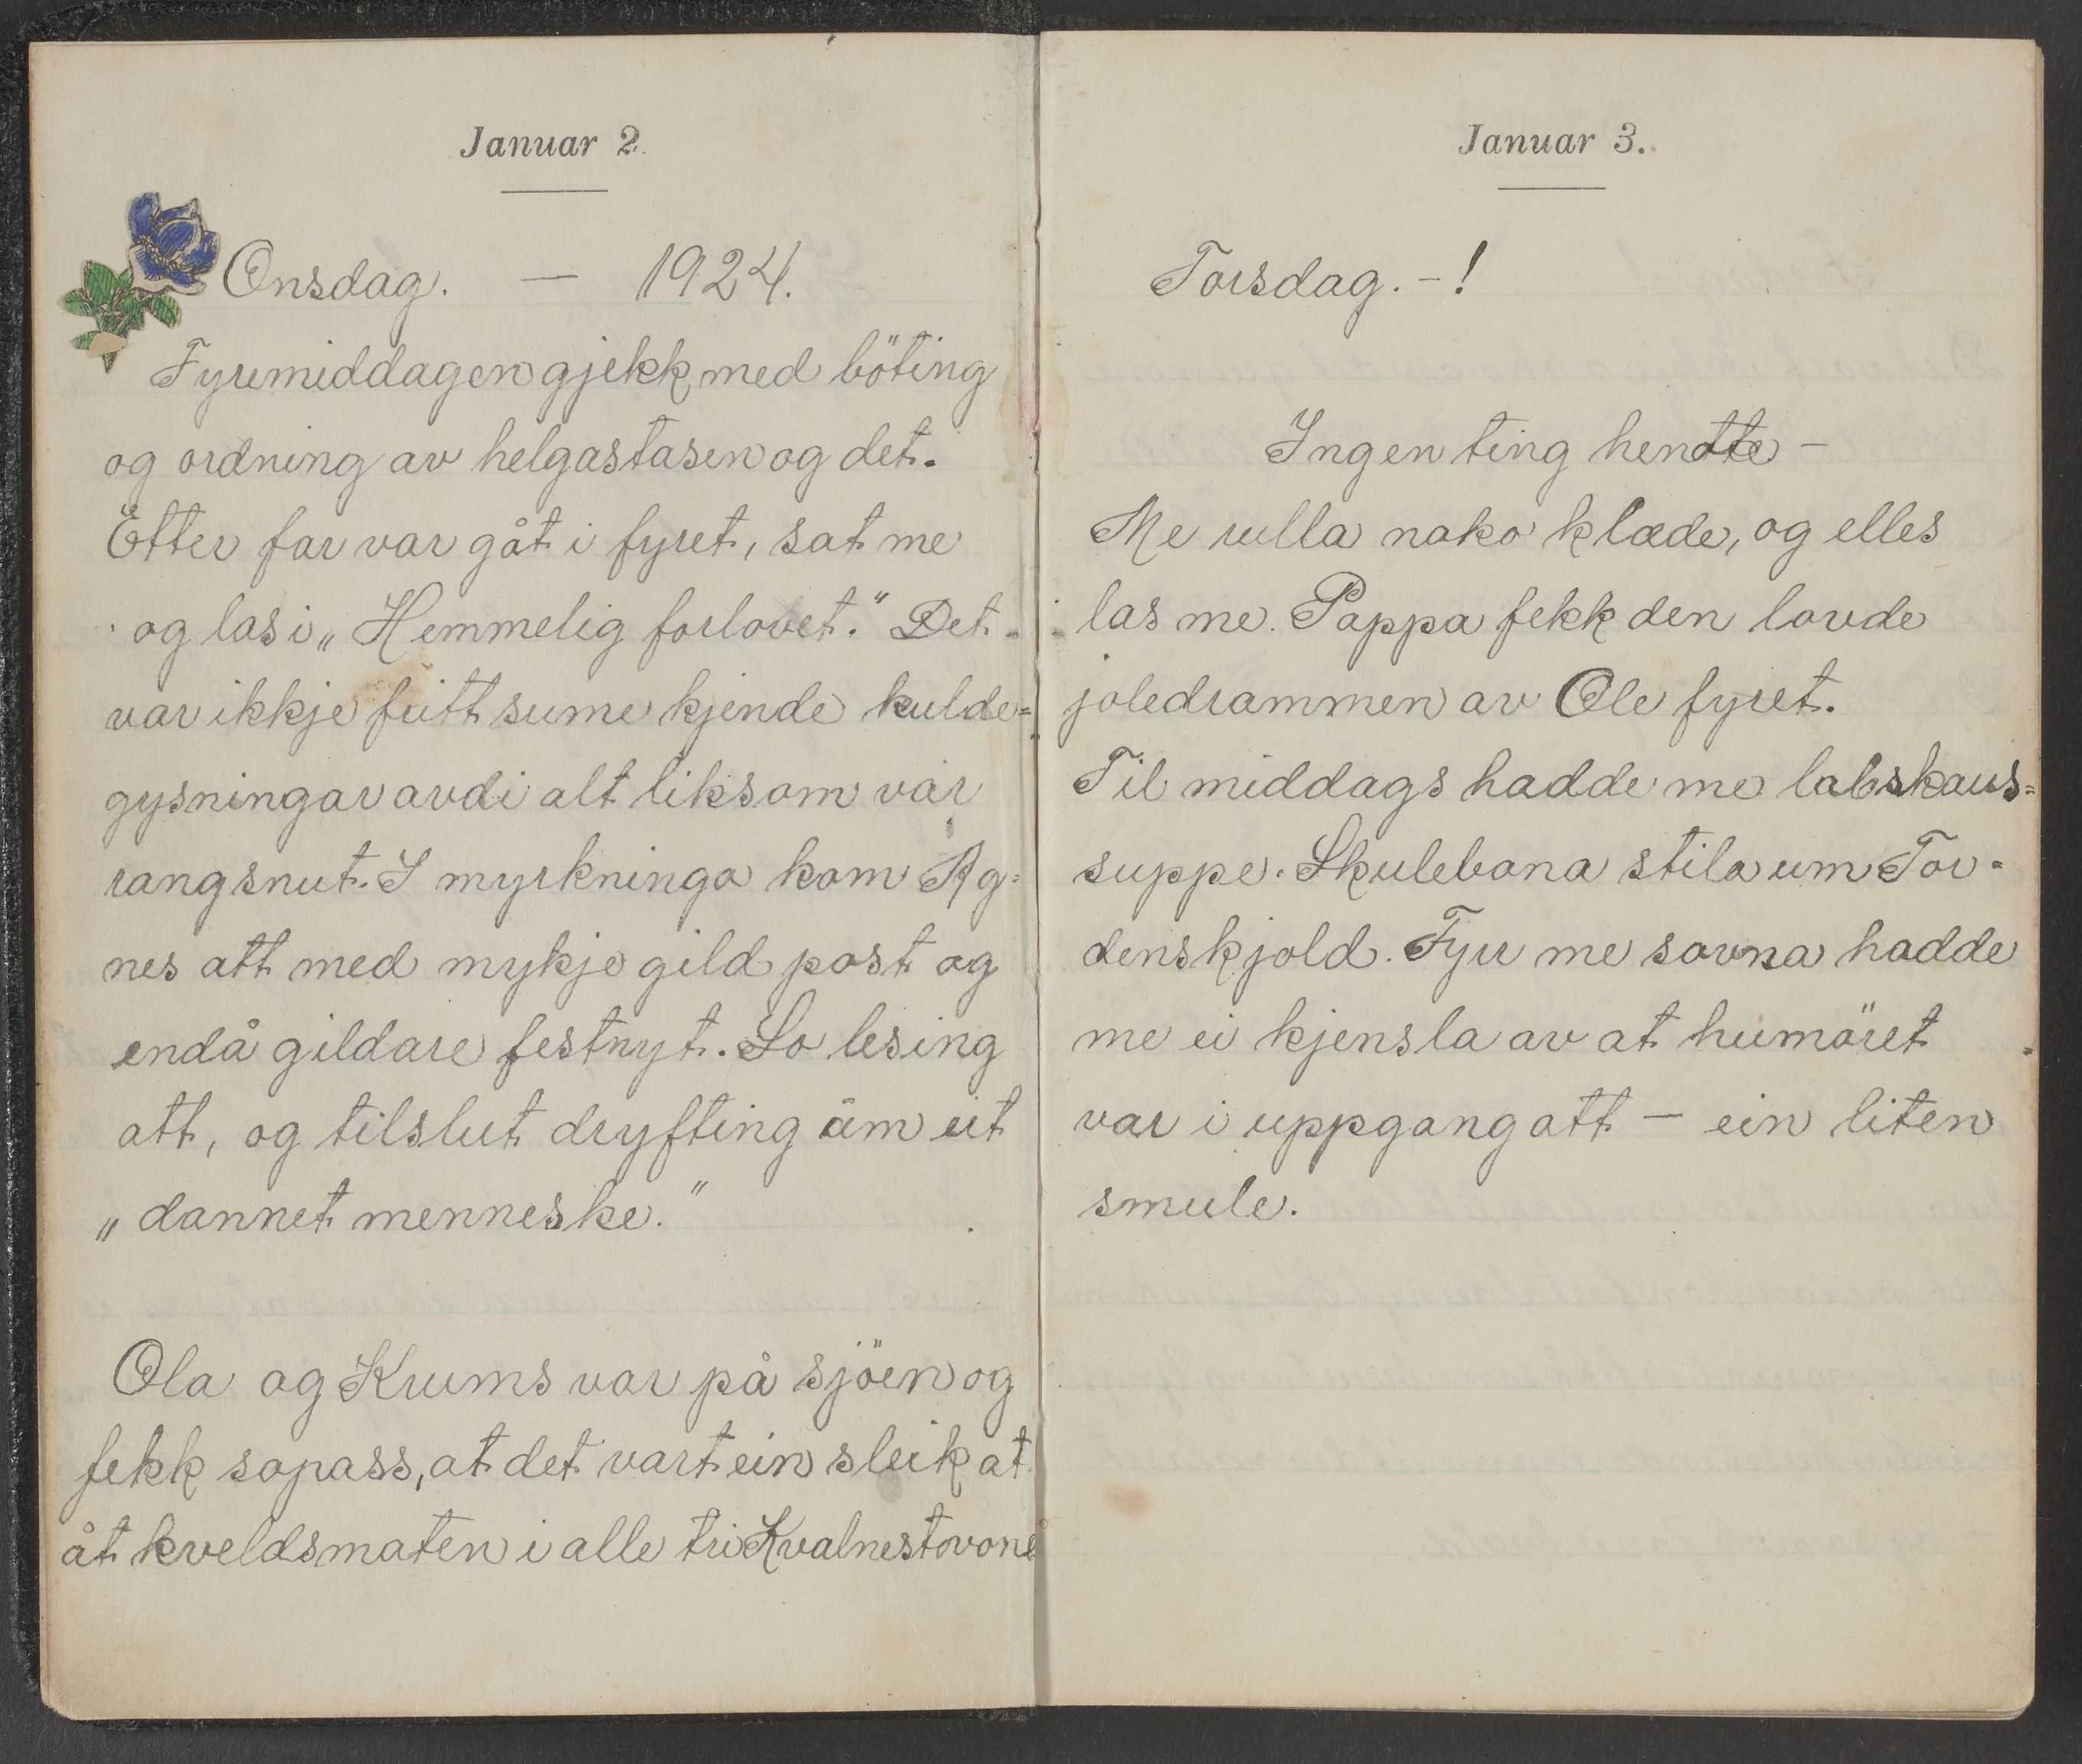 Januar 2.
Onsdag. — 1924.
Fyremiddagen gjekk med böting
og ordning av helgastasen og det.
Etter far var gåt i fyret, sat me
og las i „Hemmelig forlovet." Det
var ikkje fritt sume kjende kulde=
gysningar avdi alt liksom var
rangsnut. I myrkninga kom Ag=
nes att med mykje gild post og
endå gildare festnyt. So lesing
att, og tilslut dryfting um eit
„dannet menneske."
Ola og Krums var på sjöen og
fekk sopass, at det vart ein sleik at
åt kveldsmaten i alle tri Kvalnestovone
Januar 3.
Torsdag. - !
Ingenting hendte -
Me rulla noko klæde, og elles
las me. Pappa fekk den lovde
joledrammen av Ole fyret.
Til middags hadde me labskaus=
suppe. Skulebana stila um Tor=
denskjold. Fyrr me sovna hadde
me ei kjensla av at humöret
var i uppgang att — ein liten
smule.